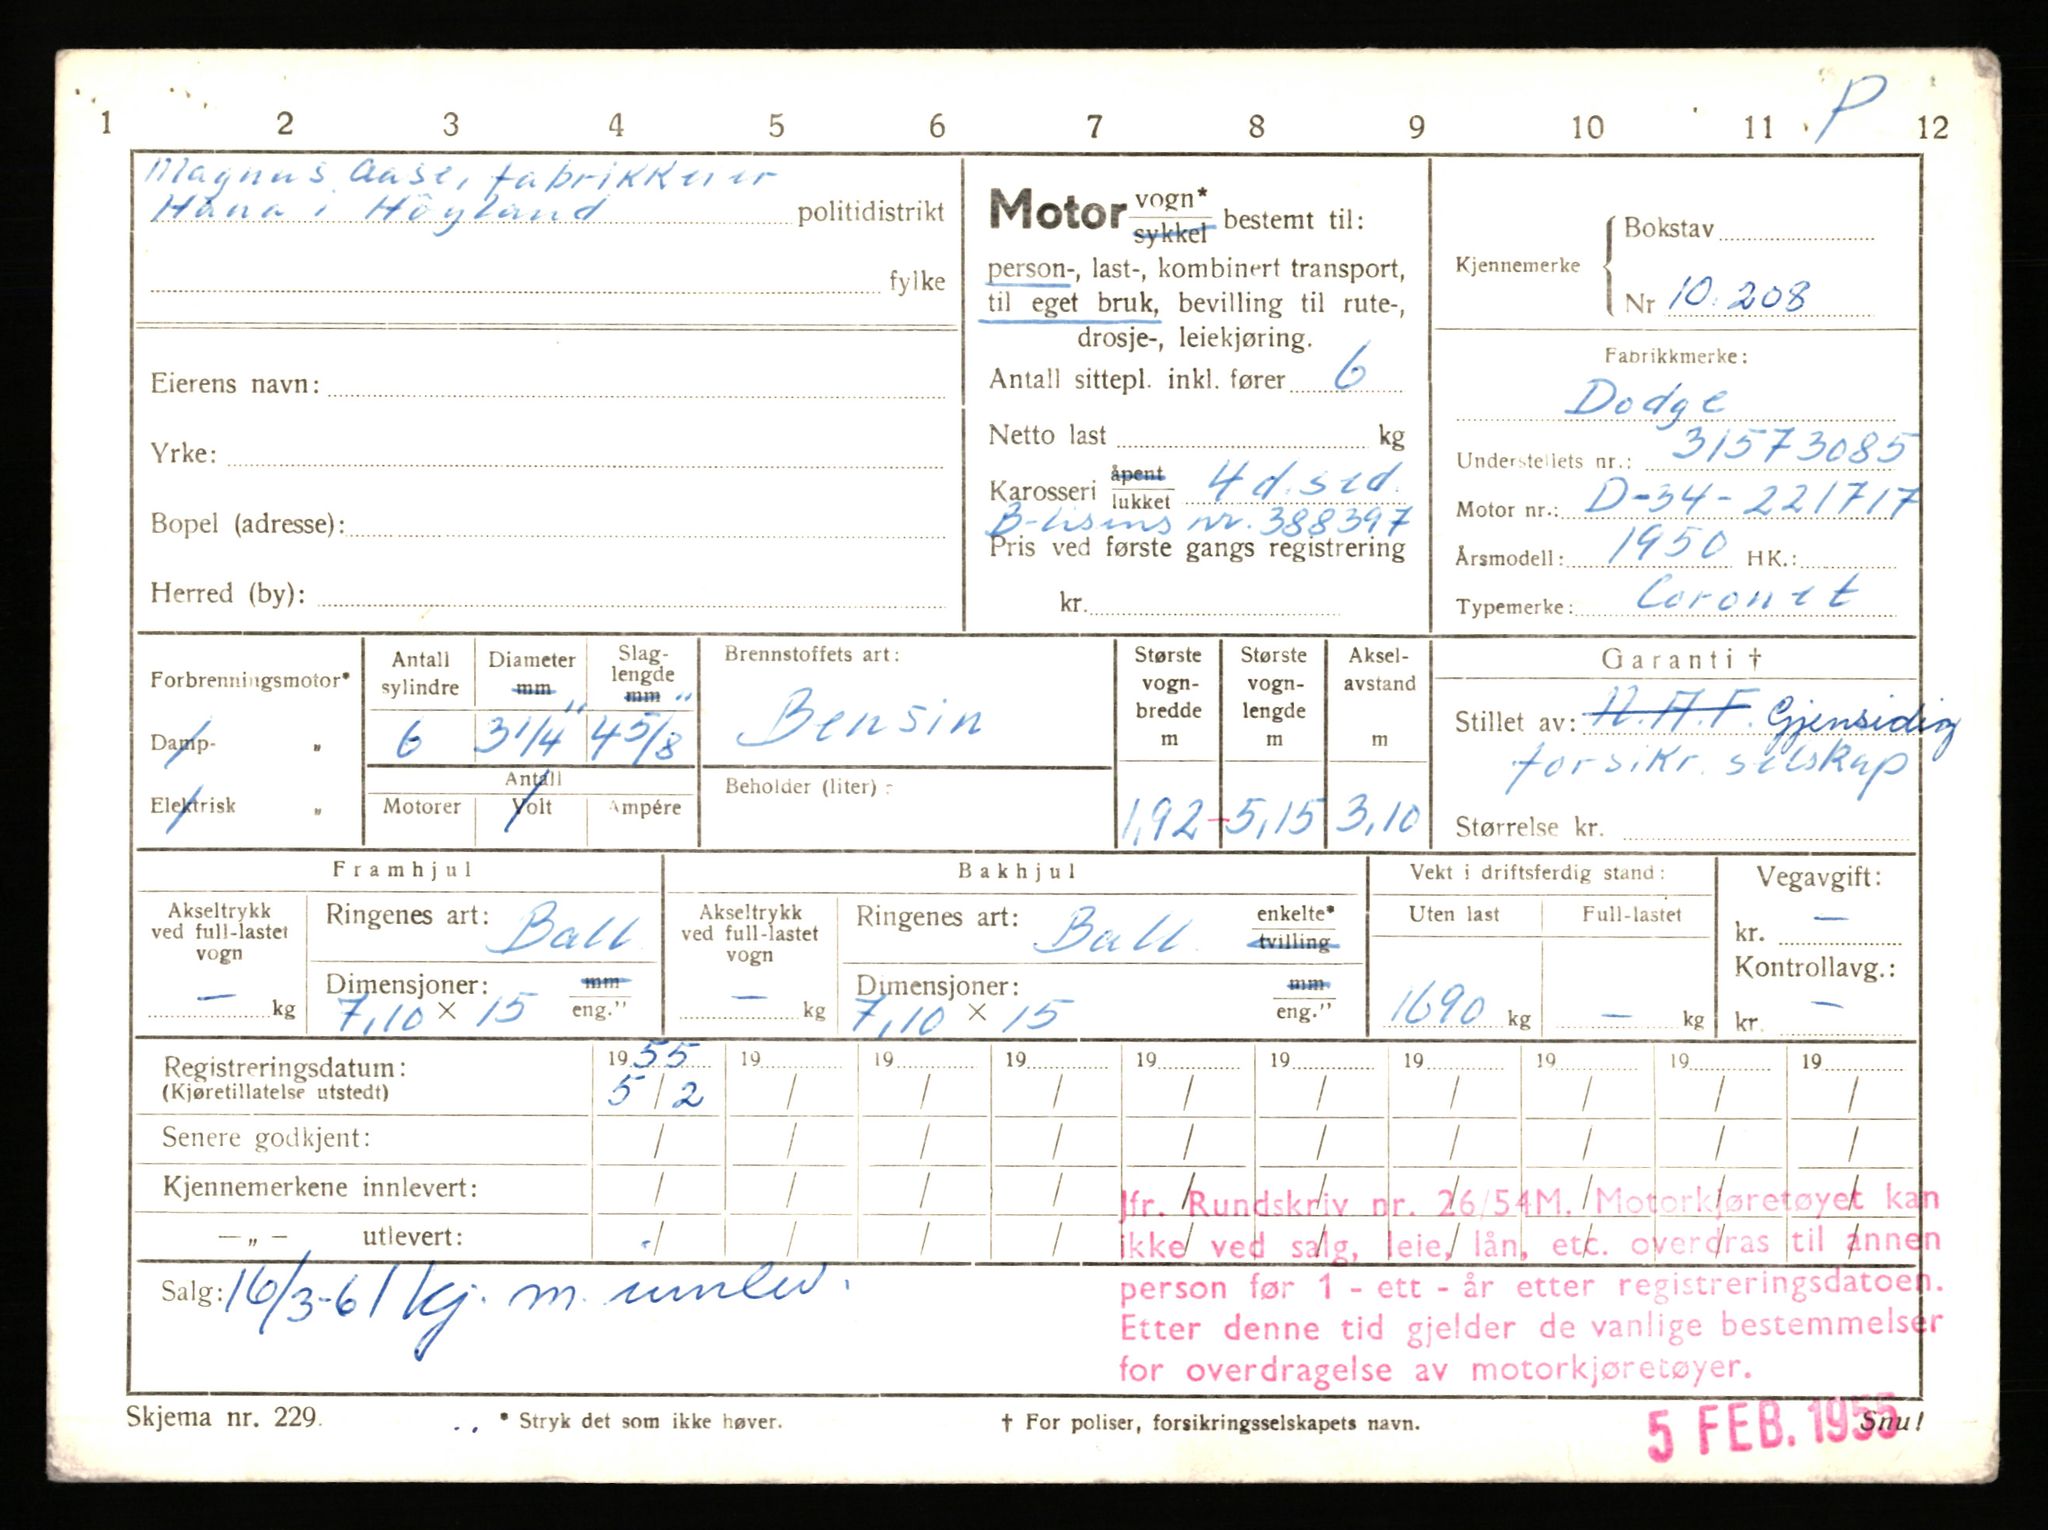 P
1 2 3 4 5 6 7 8 9 10 11 12
Magnus Aase, fabrikkeier
Hana i Höyland politidistrikt
fylke
Eierens navn:
Yrke:
Bopel (adresse):
Herred (by):
Motor vogn* sykkel bestemt til:
person-, last-, kombinert transport,
til eget bruk, bevilling til rute-,
drosje-, leiekjøring.
Antall sittepl. inkl. fører 6
Netto last kg
Karosseri åpent lukket 4 d. sed.
B-lisens nr. 388397
Pris ved første gangs registrering
kr.
Kjennemerke
Bokstav
Nr 10.208
Fabrikkmerke:
Dodge
Understellets nr.: 31573085
Motor nr.: D-34-221717
Årsmodell: 1950 HK.:
Typemerke: Coronet
Forbrenningsmotor*
Damp- „
Elektrisk „
Antall sylindre
6
Diameter mm "
3 1/4
Slag-lengde mm "
4 5/8
Antall
Motorer Volt Ampére
Brennstoffets art:
Bensin
Beholder (liter):
Største vogn-bredde m
1,92
Største vogn-lengde m
5,15
Aksel-avstand m
3,10
Garanti †
Stillet av: N.A.F. Gjensidig
forsikr. selskap
Størrelse kr.
Framhjul
Akseltrykk ved full-lastet vogn
— kg
Ringenes art: Ball.
Dimensjoner: mm
7,10 × 15 eng."
Bakhjul
Akseltrykk ved full-lastet vogn
— kg
Ringenes art: Ball. enkelte* tvilling
Dimensjoner: mm
7,10 × 15 eng."
Vekt i driftsferdig stand:
Uten last Full-lastet
1690 kg — kg
Vegavgift:
kr. —
Kontrollavg.:
kr. —
Registreringsdatum: 1955 19 19 19 19 19 19 19 19 19
(Kjøretillatelse utstedt) 5/2 / / / / / / / / /
Senere godkjent: / / / / / / / / / /
Kjennemerkene innlevert: / / / / / / / / / /
— „ — utlevert: / / / / / / / / / /
Salg: 16/3-61 kj. m. innlev.
Jfr. Rundskriv nr. 26/54M. Motorkjøretøyet kan
ikke ved salg, leie, lån, etc. overdras til annen
person før 1 - ett - år etter registreringsdatoen.
Etter denne tid gjelder de vanlige bestemmelser
for overdragelse av motorkjøretøyer.
Skjema nr. 229. * Stryk det som ikke høver. † For poliser, forsikringsselskapets navn. Snu!
5 FEB. 1955